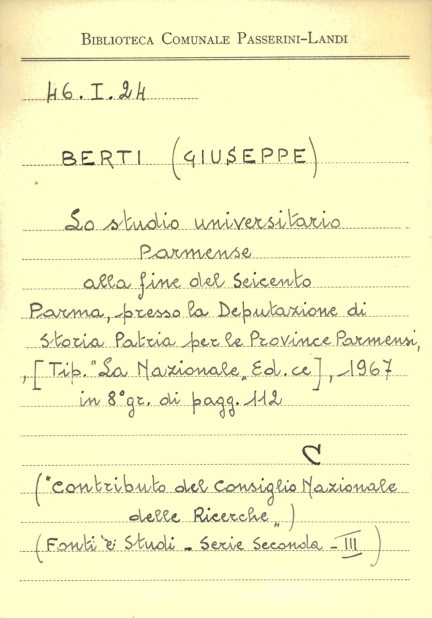 BIBLIOTECA COMUNALE PASSERINI-LANDI
46.I.24
BERTI (GIUSEPPE)
Lo studio universitario
Parmense
alla fine del Seicento
Parma, presso la Deputazione di
Storia Patria per le Province Parmensi,
, [Tip. "La Nazionale" Ed.ce], 1967
in 8° gr. di pagg. 112
C
("Contributo del Consiglio Nazionale
delle Ricerche")
(Fonti e Studi - Serie Seconda - III)